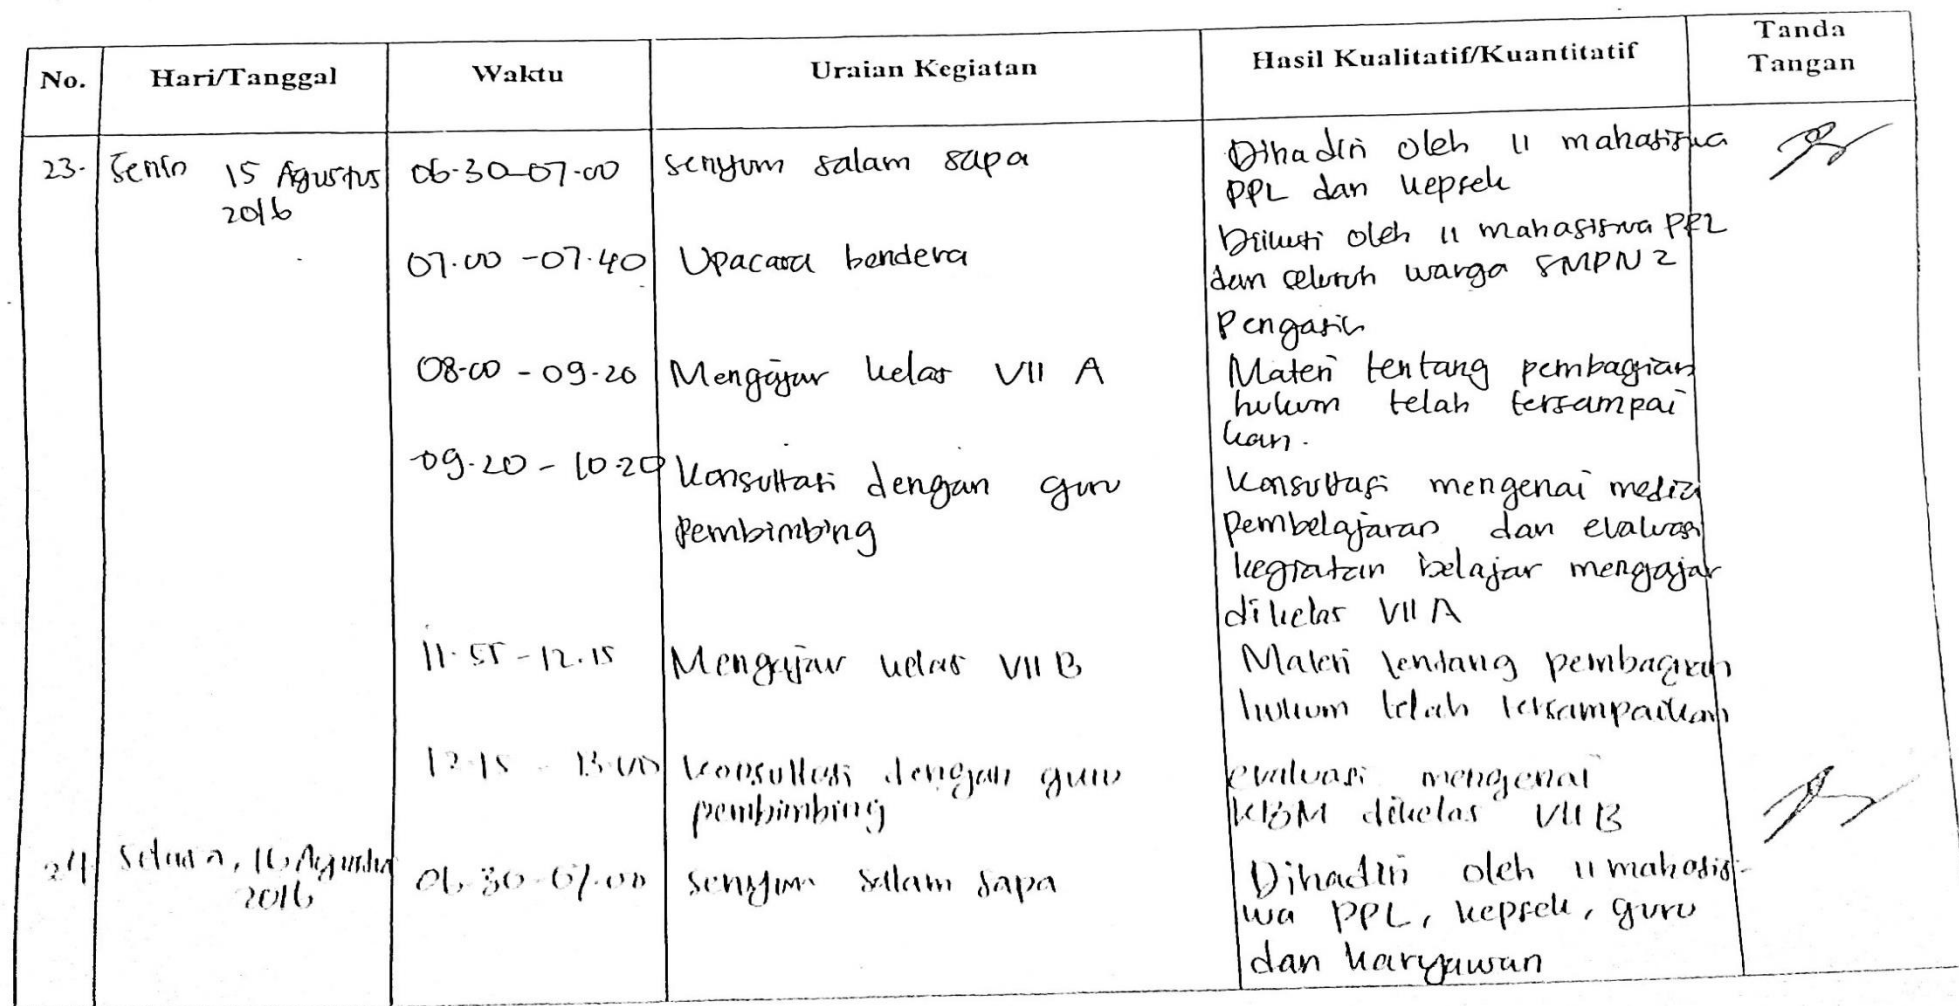 No. Hari/Tanggal Waktu Uraian Kegiatan Hasil Kualitatif/Kuantitatif Tanda Tangan
23. Senin 15 Agustus 06.30-07.00 senyum salam sapa Dihadiri oleh 11 mahasiswa
2016 PPL dan kepsek
07.00 - 07.40 Upacara bendera Diikuti oleh 11 mahasiswa PPL
dan seluruh warga SMPN 2
Pengasih
08.00 - 09.20 Mengajar kelas VII A Materi tentang pembagian
hukum telah tersampai
kan.
09.20 - 10.20 Konsultasi dengan guru Konsultasi mengenai media
pembimbing pembelajaran dan evaluasi
kegiatan belajar mengajar
dikelas VII A
11.55 - 12.15 Mengajar kelas VII B Materi tentang pembagian
hukum telah tersampaikan
12.15 - 13.00 Konsultasi dengan guru evaluasi mengenai
pembimbing KBM dikelas VII B
24. Selasa, 16 Agustus 06.30-07.00 senyum salam sapa Dihadiri oleh 11 mahasis-
2016 wa PPL, kepsek, guru
dan karyawan